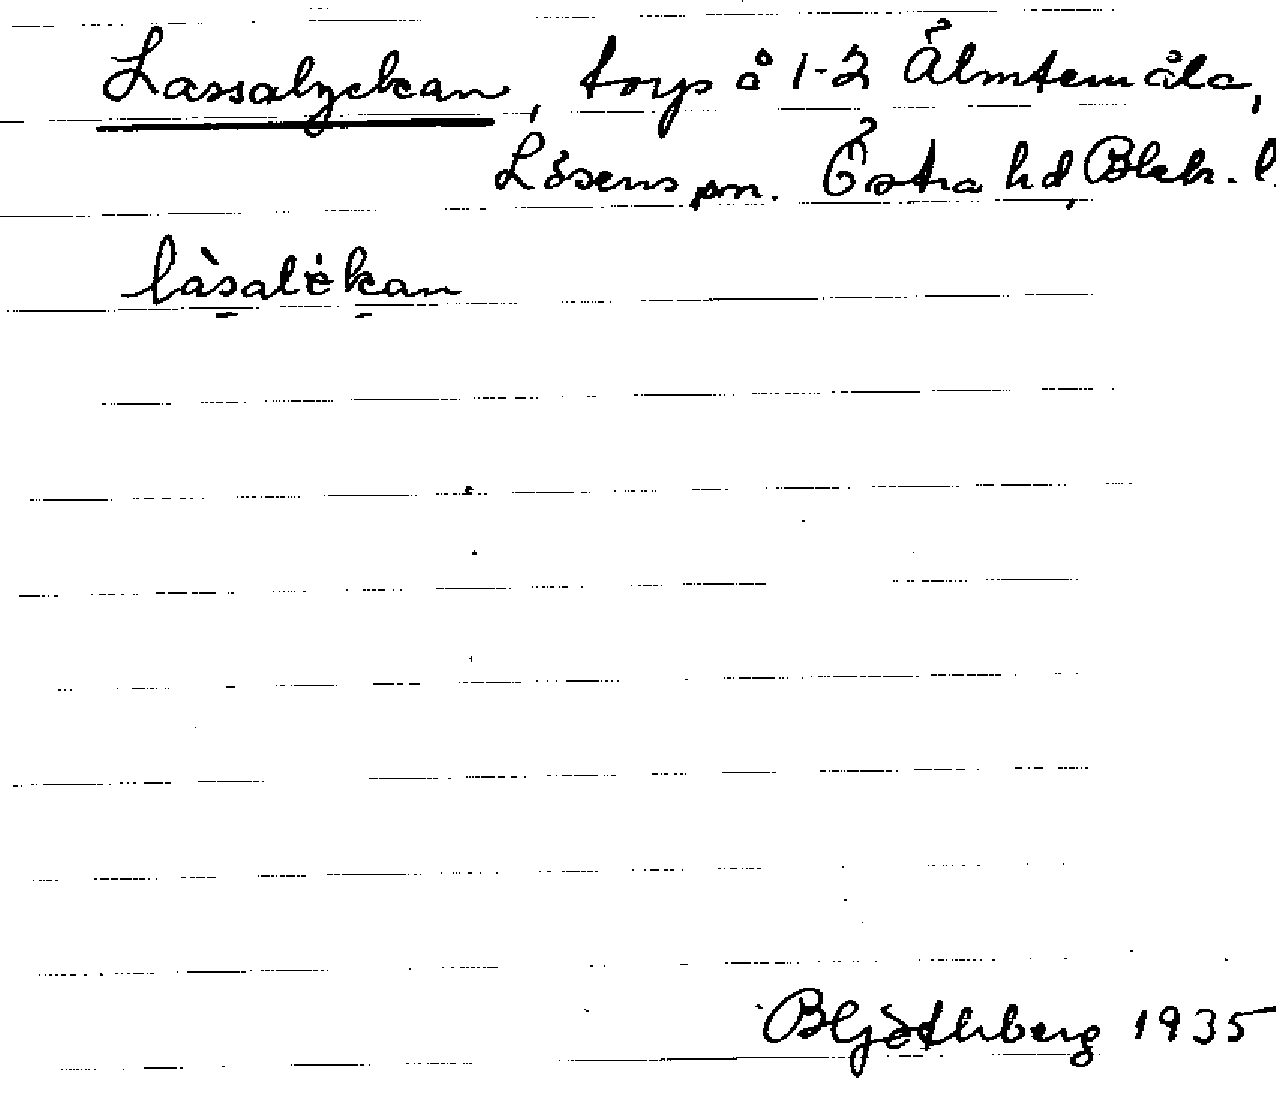 Lassalyckan, torp å 1-2 Älmtemåla,
Lösens sn. Östra hd, Blek. l.
làsalėkan
B Göthberg 1935